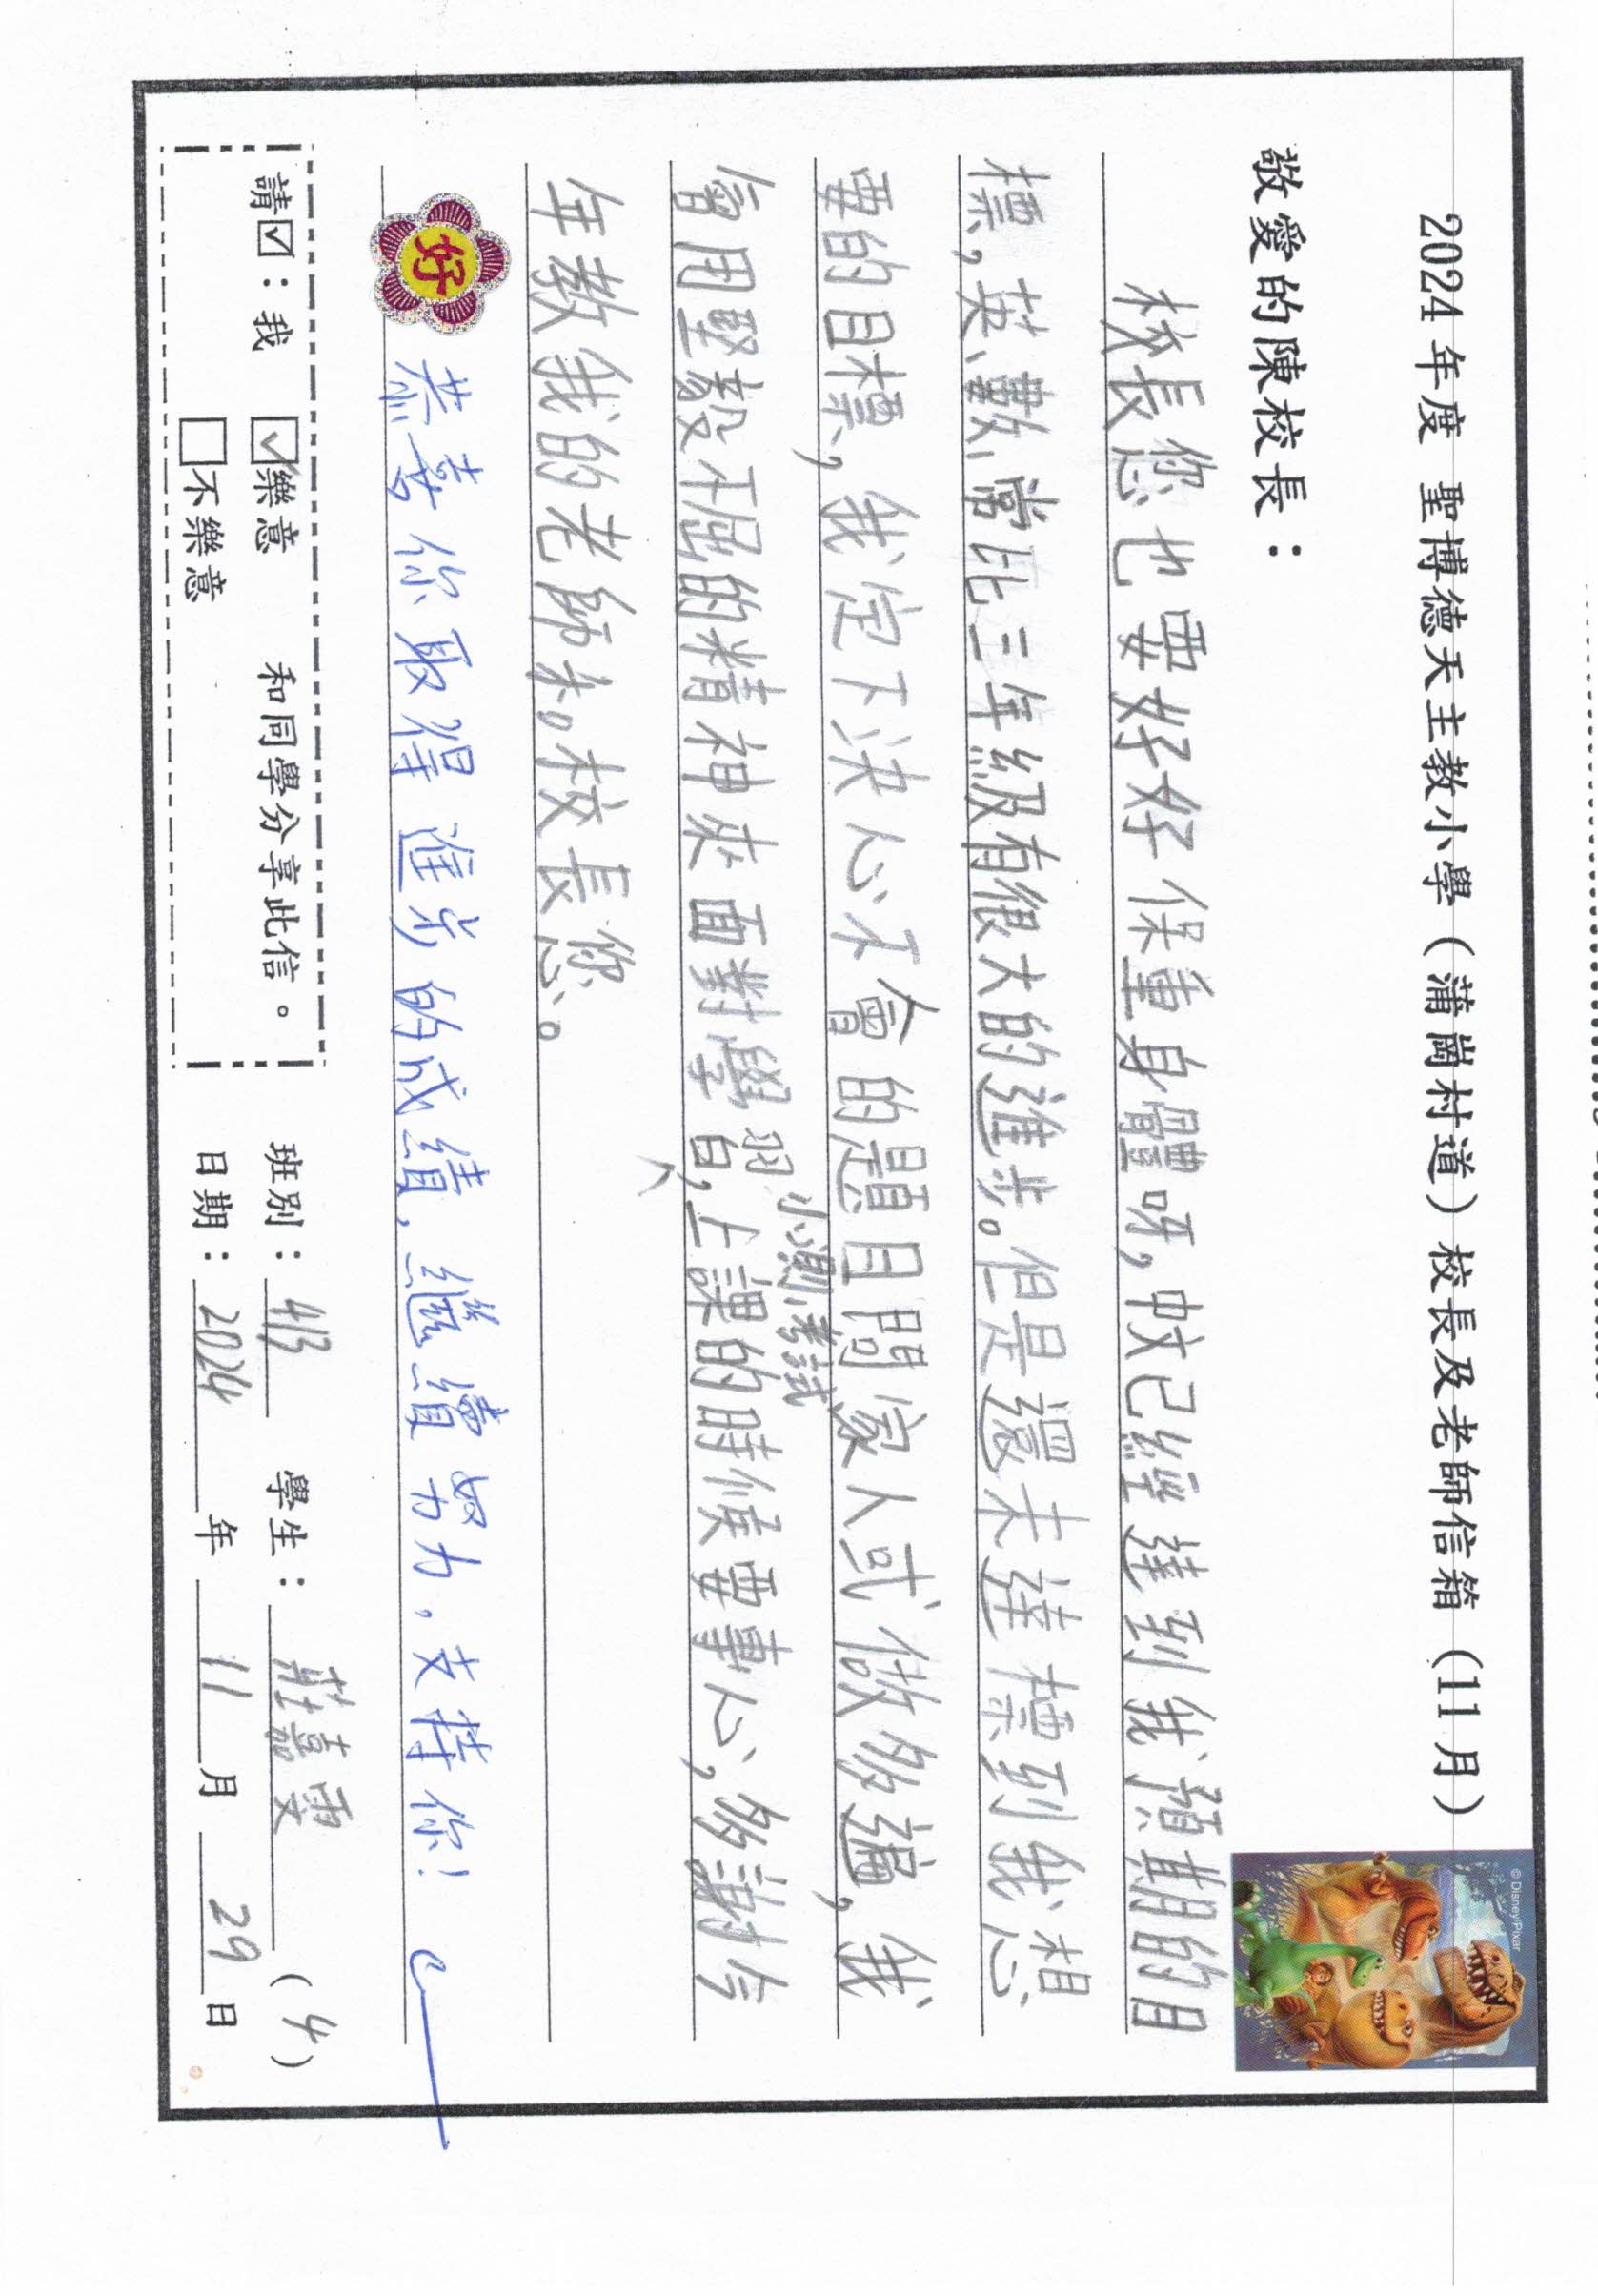 2024年度 聖博德天主教小學（蒲崗村道）校長及老師信箱（11月）
© Disney/Pixar
敬愛的陳校長：
校長您也要好好保重身體呀，中文已經達到我預期的目
標，英、數、常比三年級有很大的進步。但是還未達標到我想
要的目標，我定下決心不會的題目問家人或做多遍，我
小測、考試
會用堅毅不屈的精神來面對學習，上課的時候要專心，多謝今
年教我的老師和校長您。
好
恭喜你取得進步的成績，繼續努力，支持你！
請☑：我 ☑樂意 和同學分享此信。
□不樂意
班別：4B 學生：莊囍雯（4）
日期：2024年11月29日